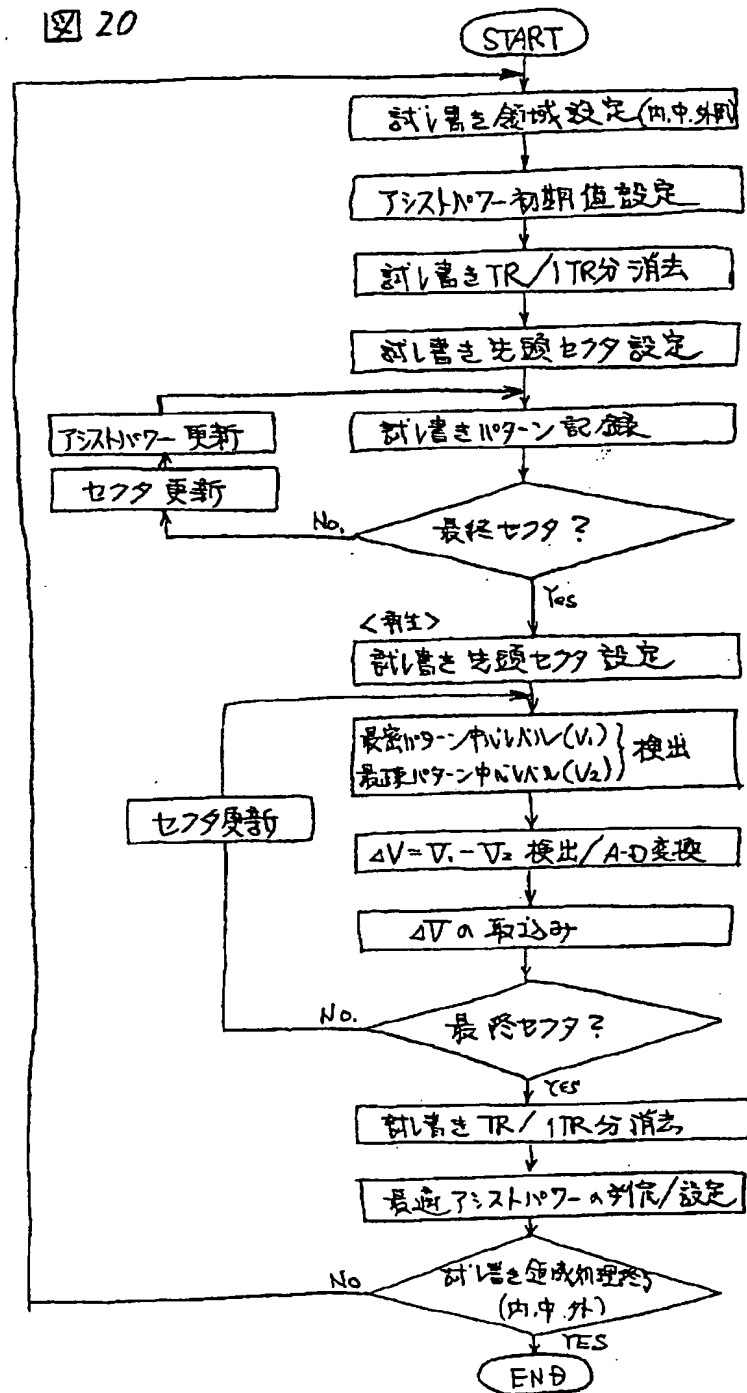 図 20
START
試し書き領域設定(内.中.外周)
アシストパワー初期値設定
試し書きTR/1TR分消去
試し書き先頭セクタ設定
アシストパワー更新
試し書きパターン記録
セクタ更新
No.
最終セクタ?
Yes
<再生>
試し書き先頭セクタ設定
最密パターン中心レベル(V1)
最疎パターン中心レベル(V2)
}検出
セクタ更新
ΔV=V1-V2 検出/A-D変換
ΔVの取込み
No.
最終セクタ?
YES
試し書きTR/1TR分消去
最適アシストパワーの判定/設定
No
試し書き領域処理終了
(内.中.外)
YES
END